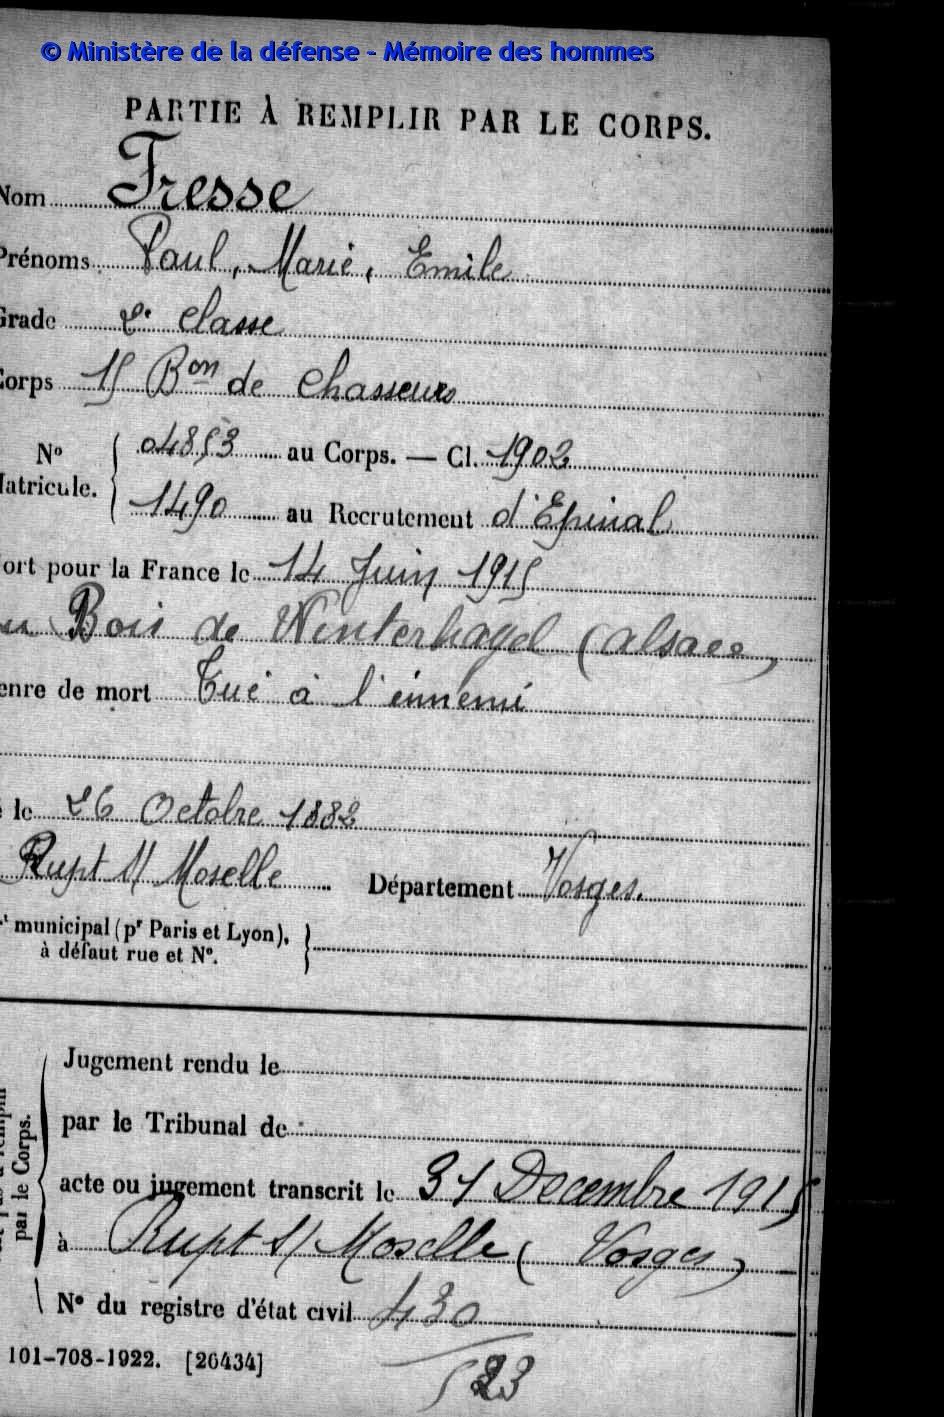 © Ministère de la défense - Mémoire des hommes
PARTIE À REMPLIR PAR LE CORPS.
Nom Fresse
Prénoms Paul, Marie, Emile
Grade 2e classe
Corps 15 Bon de Chasseurs
No Matricule. 04853 au Corps. — Cl. 1902
1490 au Recrutement d'Epinal
ort pour la France le 14 Juin 1915
au Bois de Winterhagel (Alsace)
enre de mort Tué à l'ennemi
le 26 Octobre 1882
Rupt s/ Moselle Département Vosges.
t municipal (pr Paris et Lyon),
à défaut rue et No.
Jugement rendu le
par le Tribunal de
par le Corps.
acte ou jugement transcrit le 31 Decembre 1915
à Rupt s/ Moselle (Vosges)
No du registre d'état civil 430
101-708-1922. [26434]
523